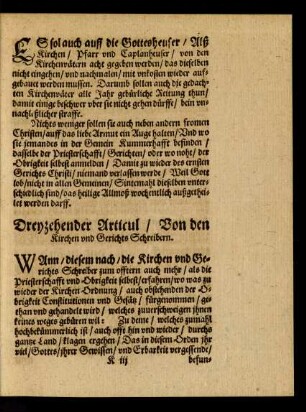 ES sol auch auff die Gottesheuser / Alß
Kirchen / Pfarr vnd Caplanheuser / von den
Kirchenvätern acht gegeben werden / das dieselben
nicht eingehen / vnd nachmaln / mit vnkosten wieder auff-
gebauet werden mussen. Darumb sollen auch die gedach-
ten Kirchenväter alle Jahr gebürliche Reitung thun /
damit einige beschwer vber sie nicht gehen dürffe / bein vn-
nachleßlicher straffe.
Nichts weniger sollen sie auch neben andern fromen
Christen / auff das liebe Armut ein Auge halten / Vnd wo
sie jemandes in der Gemein Kummerhafft befinden /
dasselbe der Priesterschafft / Gerichten / oder wo nohe / der
Obrigkeit selbst anmelden / Damit zu wieder des ernsten
Gerichts Christi / niemand verlassen werde / Weil Gott
lob / nicht in allen Gemeinen / Sintemahl dieselben unter-
schiedlich sind / das heilige Allmoß wochentlich außgethei-
let werden darff.
Dreyzehender Articul / Von den
Kirchen vnd Gerichts Schreibern.
WAnn / diesem nach / die Kirchen vnd Ge-
richts Schreiber zum offtern auch mehr / als die
Priesterschafft vnd Obrigkeit selbst / erfahren / wo was zu
wieder der Kirchen-Ordnung / auch abstehenden der O-
brigkeit Constitutionen vnd Gesätz / fürgenommen / ge-
than vnd gehandelt wird / welches zuuerschweigen ihnen
keines weges gebüren wil: Zu deme / welches zumahl
hochbekümmerlich ist / auch offt hin vnd wieder / durchs
gantze Land / klagen ergehen / Das in diesem Orden ihr
viel / Gottes / ihrer Gewissen / vnd Erbarkeit vergessende /
K iij
befun-